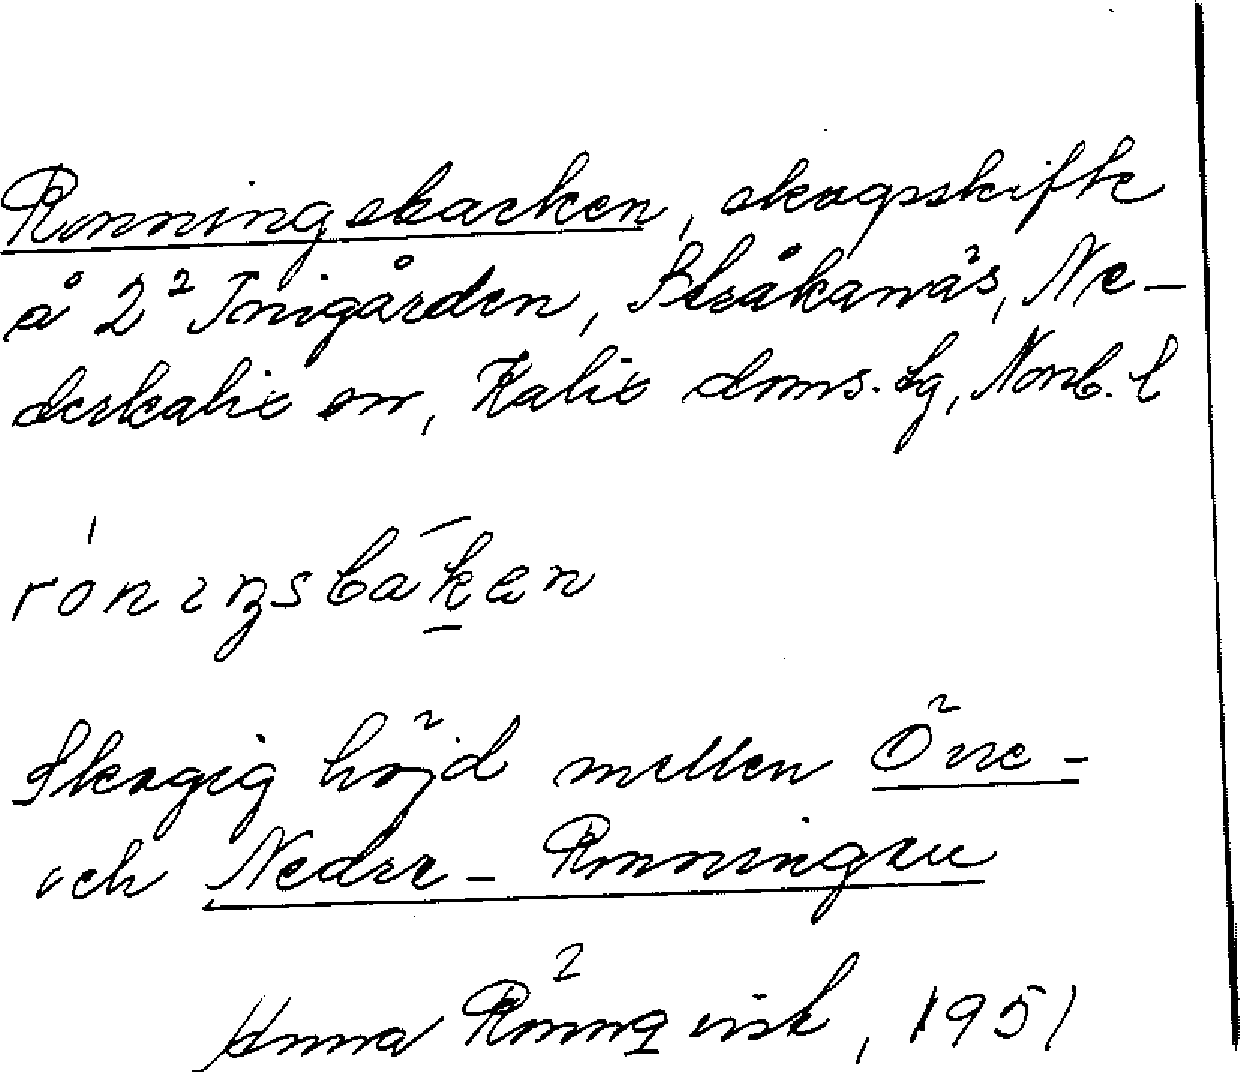 Ronningsbacken, skogsskifte
å 2² Jonigården, Stråkanäs, Ne-
derkalix sn, Kalix doms. lg, Norrb. l
róniŋsbak̠en
Skogig höjd mellan Övre-
och Nedre-Ronningen
Anna Rönnqvist, 1951